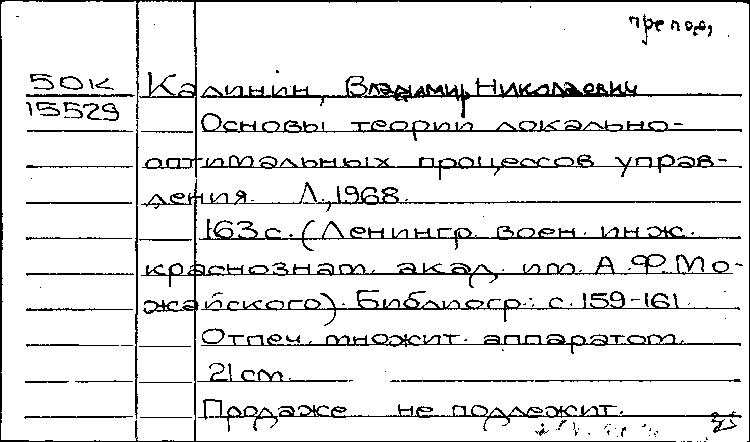 препод,
50К Калинин, Владимир Николаевич
15529
Основы теории локально-
оптимальных процессов управ-
ления. Л., 1968.
163 с. (Ленингр. воен. инж.
краснознам. акад. им. А.Ф. Мо-
жайского). Библиогр.: с. 159-161.
Отпеч. множит. аппаратом.
21 см.
Продаже не подлежит.